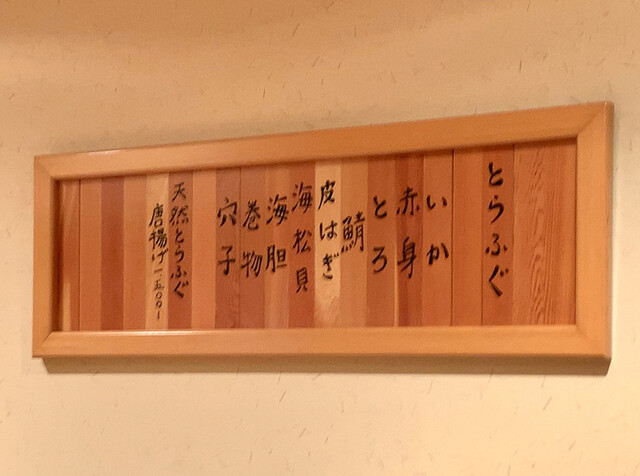 とらふぐ
いか
赤身
とろ
鯖
皮はぎ
海松貝
海胆
巻物
穴子
天然とらふぐ
唐揚げ一、五〇〇~